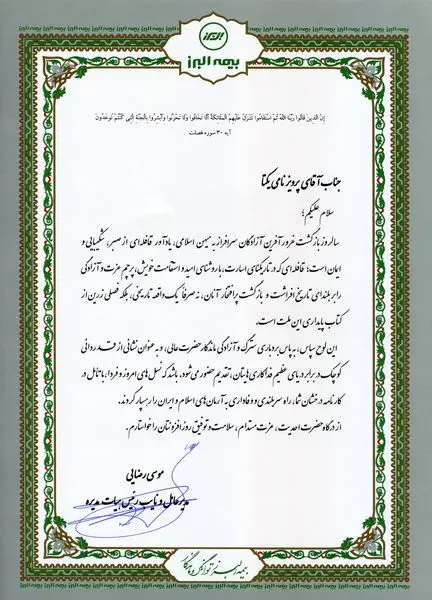 البرز
بیمه البرز
إِنَّ الَّذِينَ قَالُوا رَبُّنَا اللَّهُ ثُمَّ اسْتَقَامُوا تَتَنَزَّلُ عَلَيْهِمُ الْمَلَائِكَةُ أَلَّا تَخَافُوا وَلَا تَحْزَنُوا وَأَبْشِرُوا بِالْجَنَّةِ الَّتِي كُنْتُمْ تُوعَدُونَ
آیه ۳۰ سوره فصلت
جناب آقای پرویز نامی یکتا
سلام علیکم؛
سالروز بازگشت غرورآفرین آزادگان سرافراز به میهن اسلامی، یادآور قافله‌ای از صبر، شکیبایی و
ایمان است؛ قافله‌ای که در تاریکنای اسارت، با روشنای امید و استقامت خویش، پرچم عزت و آزادگی
را بر بلندای تاریخ افراشت و بازگشت پرافتخار آنان، نه صرفا یک واقعه تاریخی، بلکه فصلی زرین از
کتاب پایداری این ملت است.
این لوح سپاس، به پاس بردباری سترگ و آزادگی ماندگار حضرت عالی، و به عنوان نشانی از قدردانی
کوچک در برابر دریای عظیم فداکاری‌هایتان، تقدیم حضور می‌شود. باشد که نسل‌های امروز و فردا، با تامل در
کارنامه درخشان شما، راه سربلندی و وفاداری به آرمان‌های اسلام و ایران را رهسپار گردند.
از درگاه حضرت احدیت، عزت مستدام، سلامت و توفیق روز افزونتان را خواستارم.
موسی رضایی
مدیرعامل و نایب رئیس هیات مدیره